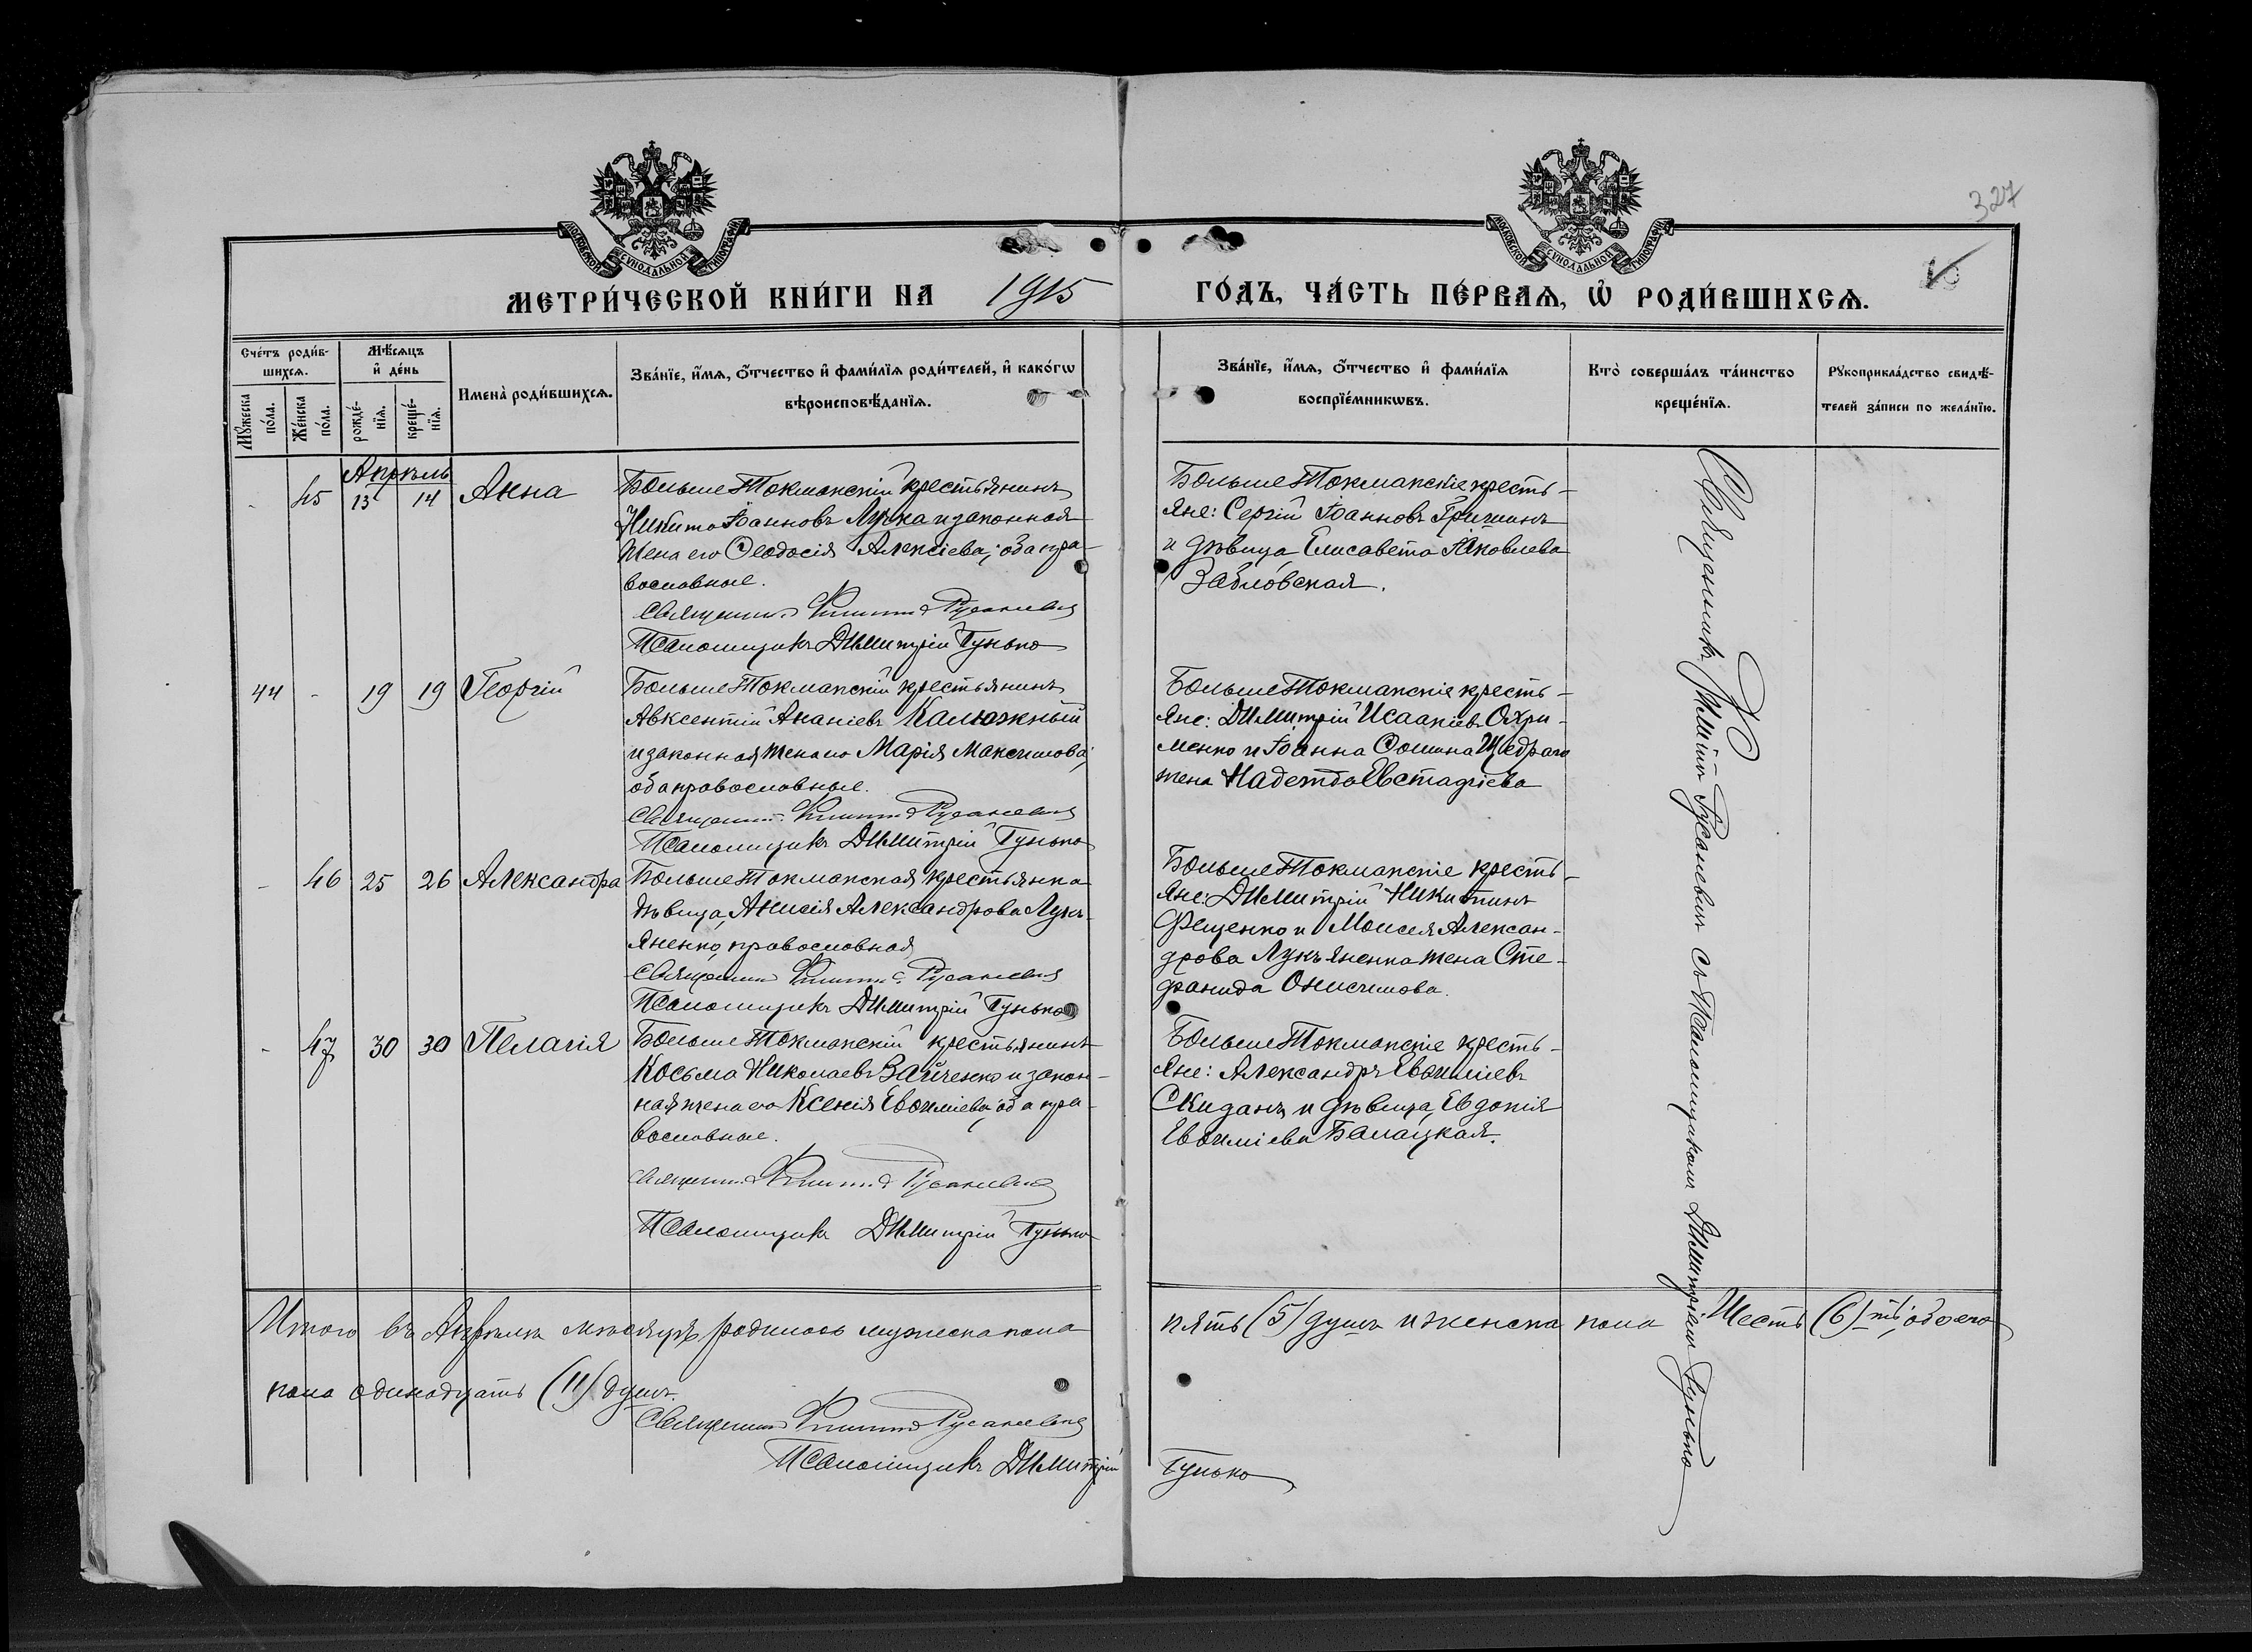 327
МОСКОВСКОЙ СУНОДАЛЬНОЙ ТИПОГРАФИИ
МОСКОВСКОЙ СУНОДАЛЬНОЙ ТИПОГРАФИИ
МЕТРИ́ЧЕСКОЙ КНИ́ГИ НА 1915 ГО́ДЪ, ЧА́СТЬ ПЕ́РВАѦ, Ѡ҆ РОДИ́ВШИХСѦ.
Сче́тъ роди́в-
шихсѧ.
Мꙋ́жеска по́ла.
Же́нска по́ла.
Мѣ́сѧцъ
и҆ де́нь
рожде́-
нїѧ.
креще́-
нїѧ.
Имена̀ роди́вшихсѧ.
Зва́нїе, и҆́мѧ, ѻ҆́тчество и҆ фами́лїѧ роди́телей, и҆ како́гѡ
вѣроисповѣ́данїѧ.
Зва́нїе, и҆́мѧ, ѻ҆́тчество и҆ фами́лїѧ
воспрїе́мникѡвъ.
Кто̀ соверша́лъ та́инство
креще́нїѧ.
Рꙋкоприкла́дство свидѣ́-
телей за́писи по жела́нїю.
Апрѣль
- 45 13 14 Анна
Больше Токмакскій крестьянинъ
Никита Іоанновъ Лука и законная
жена его Ѳеодосія Алексіева; оба пра-
вославные.
Священникъ Филиппъ Русаневичъ
Псаломщикъ Димитрій Гунько
Больше Токмакскіе кресть-
яне: Сергій Іоанновъ Гришинъ
и дѣвица Елисавета Іаковлева
Забловская.
44 - 19 19 Георгій
Больше Токмакскій крестьянинъ
Авксентій Ананіевъ Калюжный
и законная жена его Марія Максимова;
оба православные.
Священникъ Филиппъ Русаневичъ
Псаломщикъ Димитрій Гунько
Больше Токмакскіе кресть-
яне: Димитрій Исаакіевъ Охри-
менко и Іоанна Ѳомина Щедраго
жена Надежда Евстафіева
- 46 25 26 Александра
Больше Токмакская крестьянка
дѣвица, Анисія Александрова Лукъ-
яненко, православная
Священникъ Филиппъ Русаневичъ
Псаломщикъ Димитрій Гунько
Больше Токмакскіе кресть-
яне: Димитрій Никитинъ
Фещенко и Моисея Алексан-
дрова Лукъяненка жена Сте-
фанида Онисимова.
- 47 30 30 Пелагія
Больше Токмакскій крестьянинъ
Косьма Николаевъ Зайченко и закон-
ная жена его Ксенія Евѳиміева; оба пра-
вославные.
Священникъ Филиппъ Русаневичъ
Псаломщикъ Димитрій Гунько
Больше Токмакскіе кресть-
яне: Александръ Евѳиміевъ
Скиданъ и дѣвица, Евдокія
Евѳиміева Балацкая.
Священникъ Филиппъ Русаневичъ съ Псаломщикомъ Димитріемъ Гунько
Итого въ Апрѣлѣ мѣсяцѣ родилось мужеска пола пять (5) душъ и женска пола Шесть (6)-ть; обоего
пола одинадцать (11) душъ.
Священникъ Филиппъ Русаневичъ
Псаломщикъ Димитрій Гунько